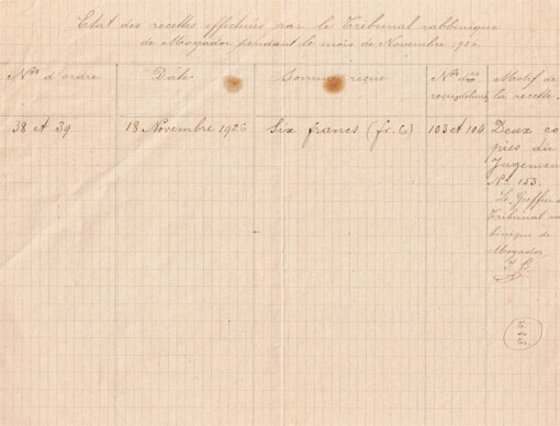 Etat des recettes effectuées par le Tribunal rabbinique
de Mogador pendant le mois de Novembre 192
Nos d'ordre
Date
Somme reçue
Nos des
Motif de
la recette
38 et 39
18 Novembre 1926
Six francs (fr. 6)
103 et 104
Deux co
pies du
Jugemen
No 153.
Le Greffier d
Tribunal ra
binique de
Mogador,